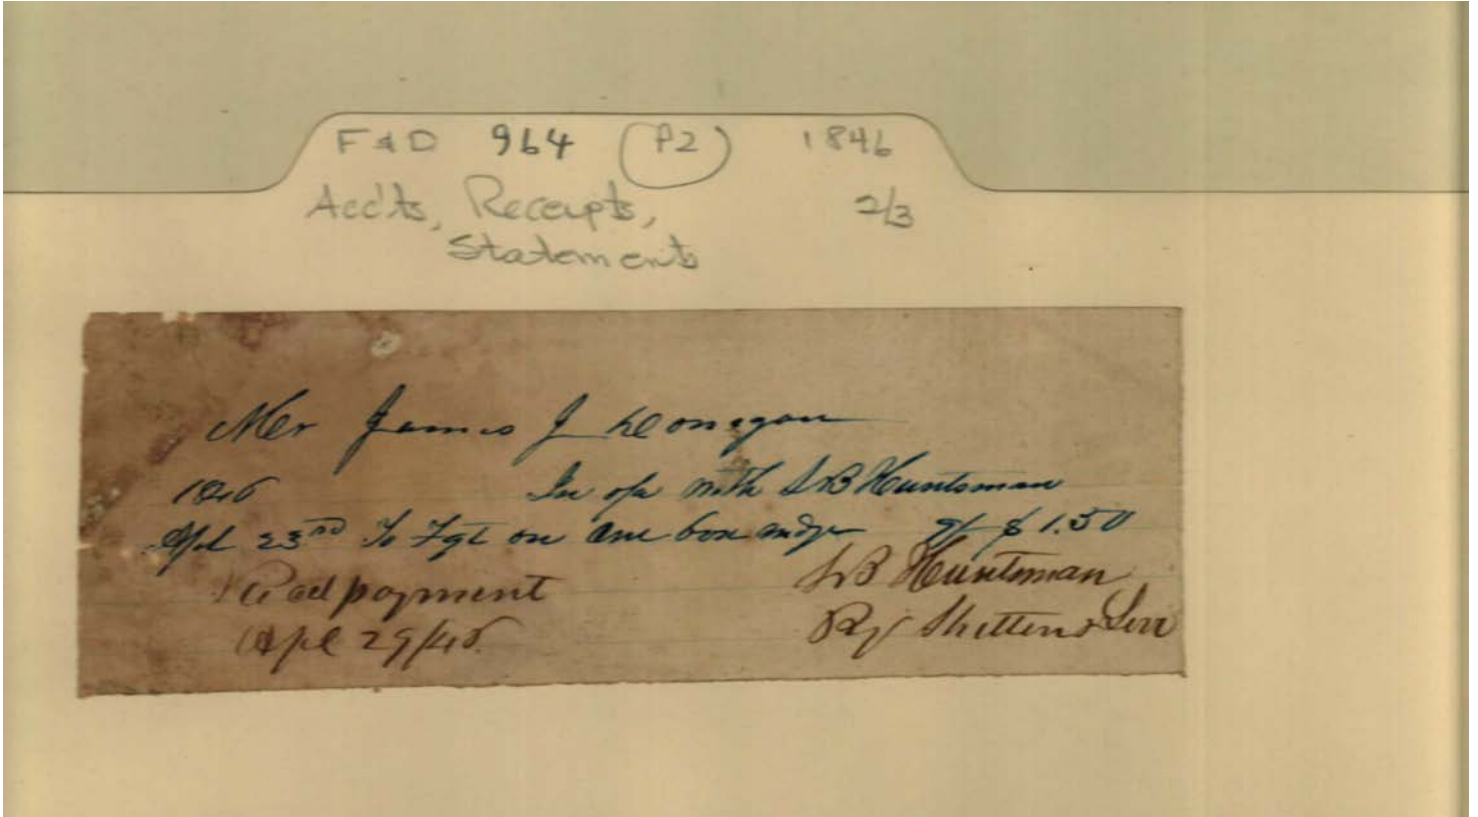 F & D 964 (P2) 1846
Acc'ts, Receipts, 2/3
Statements
Mr James J Donegan
1846 In a/c with S B Huntsman
Apl 23rd To Fgt on one box mdze $1.50
Recd payment S B Huntsman
Apl 29/46 By